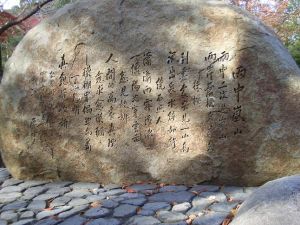 雨中嵐山
雨中二次遊嵐山
兩岸蒼松夾着幾株櫻
到盡處突見一山高
流出泉水綠如許
繞石照人
瀟瀟雨霧濛濃
一線陽光穿雲出
愈見姣妍
人間的萬象真理
愈求愈模糊
模糊中偶然見着
一點光明
真愈覺姣妍